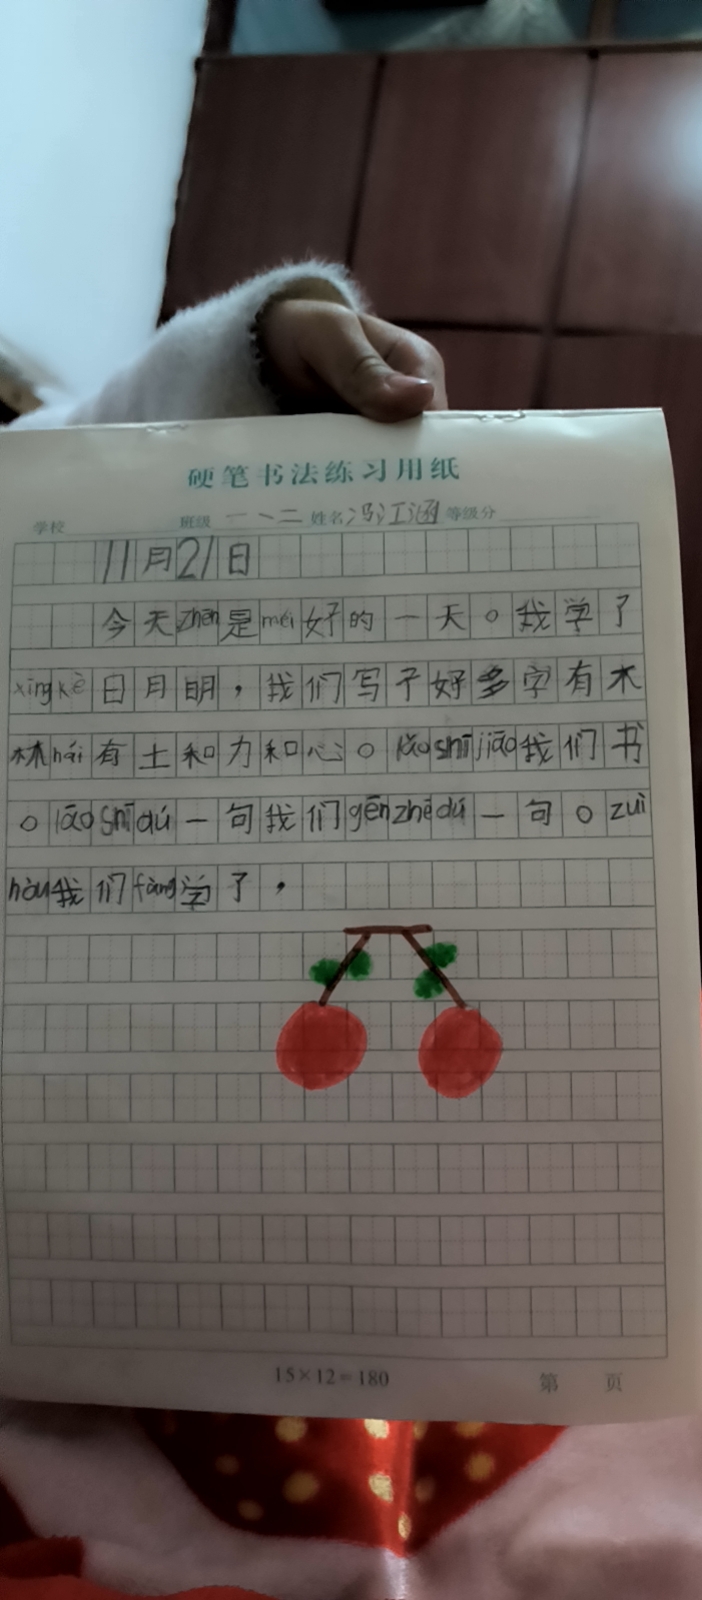 硬笔书法练习用纸
学校 班级 一、二 姓名 冯江涵 等级分
11月21日
今天zhēn是měi好的一天。我学了
xīngkè日月明，我们写了好多字有木
林hái有土和力和心。lǎoshījiāo我们书
。lǎoshīdú一句我们gēnzhedú一句。zuì
hòu我们fàng学了，
15×12=180
第 页